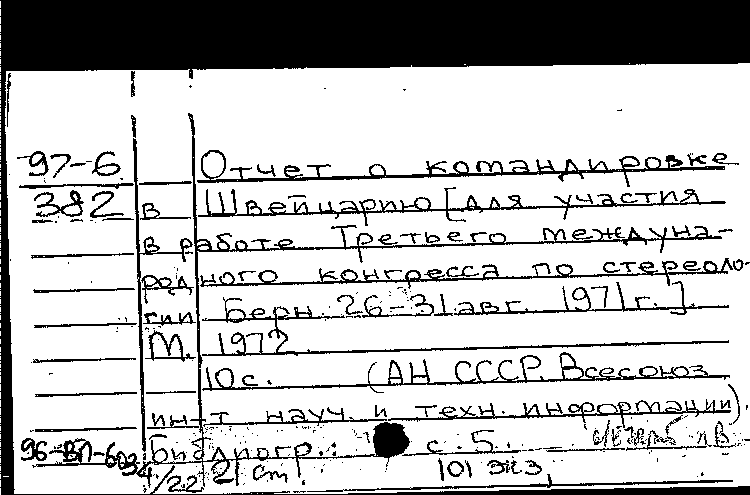 97-6 Отчет о командировке
382 в Швейцарию [для участия
в работе Третьего междуна-
родного конгресса по стереоло-
гии Берн. 26-31 авг. 1971 г.].
М. 1972
10 с. (АН СССР. Всесоюз
ин-т науч. и техн. информации).
Библиогр.: с. 5. –
96-ВП-6034/22 21 см! 101 экз,